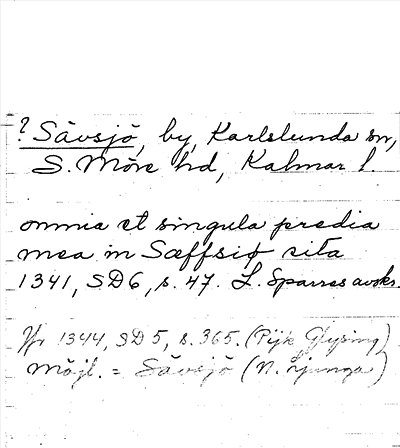 ? Sävsjö, by, Karlslunda sn,
S. Möre hd, Kalmar l.
omnia et singula predia
mea in Sæffsiø sita
1341, SD6, s. 47. L. Sparres avskr.
Jfr 1344, SD5, s. 365. (Pijk Glysing)
Möjl. = Sävsjö (N. Ljunga)